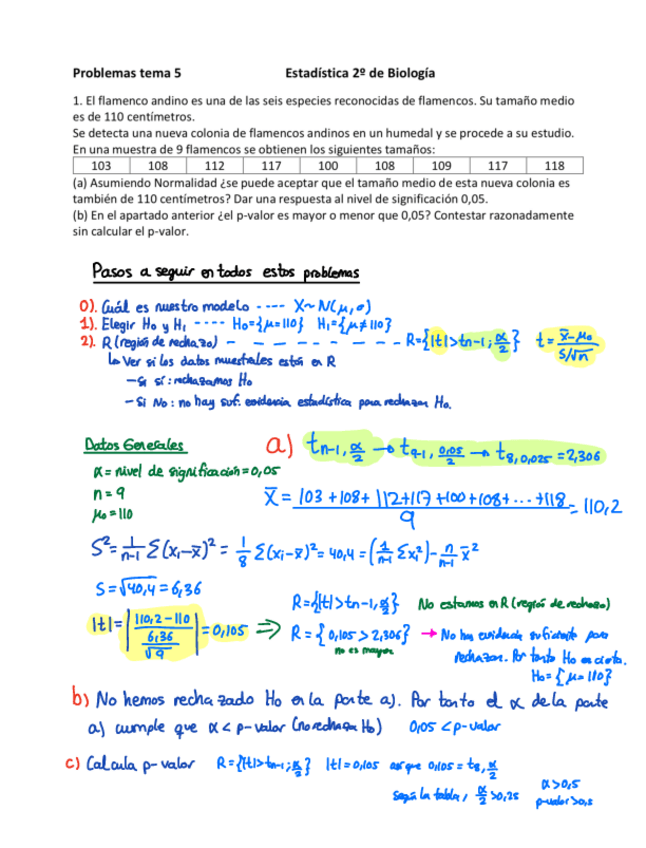 Problemas tema 5 Estadística 2º de Biología
1. El flamenco andino es una de las seis especies reconocidas de flamencos. Su tamaño medio
es de 110 centímetros.
Se detecta una nueva colonia de flamencos andinos en un humedal y se procede a su estudio.
En una muestra de 9 flamencos se obtienen los siguientes tamaños:
103 108 112 117 100 108 109 117 118
(a) Asumiendo Normalidad ¿se puede aceptar que el tamaño medio de esta nueva colonia es
también de 110 centímetros? Dar una respuesta al nivel de significación 0,05.
(b) En el apartado anterior ¿el p-valor es mayor o menor que 0,05? Contestar razonadamente
sin calcular el p-valor.
Pasos a seguir en todos estos problemas
0). Cuál es nuestro modelo ---- X~N(μ,σ)
1). Elegir H₀ y H₁ ---- H₀={μ=110} H₁={μ≠110}
2). R (región de rechazo) - - - - - - - - R={|t|>tn-1; α/2} t = (x̄-μ₀)/(S/√n)
↳ Ver si los datos muestrales están en R
- Si sí: rechazamos H₀
- Si No: no hay suf. evidencia estadística para rechazar H₀.
Datos Generales
α = nivel de significación = 0,05
n = 9
μ₀ = 110
a) tn-1, α/2 → t9-1, 0,05/2 → t8, 0,025 = 2,306
X̄ = (103+108+112+117+100+108+...+118)/9 = 110,2
S² = 1/(n-1) Σ(xi-x̄)² = 1/8 Σ(xi-x̄)² = 40,4 = (1/(n-1) Σxi²) - n/(n-1) x̄²
S = √40,4 = 6,36
|t| = |(110,2-110)/(6,36/√9)| = 0,105 ⇒
R={|t|>tn-1, α/2} No estamos en R (región de rechazo)
R = {0,105 > 2,306} → No hay evidencia suficiente para
no es mayor
rechazar. Por tanto H₀ es cierta.
H₀={μ=110}
b) No hemos rechazado H₀ en la parte a). Por tanto el α de la parte
a) cumple que α < p-valor (no rechazar H₀) 0,05 < p-valor
c) Calcula p-valor R={|t|>tn-1; α/2} |t|=0,105 así que 0,105 = t8, α/2
Según la tabla, α/2 > 0,25 α > 0,5
p-valor > 0,5